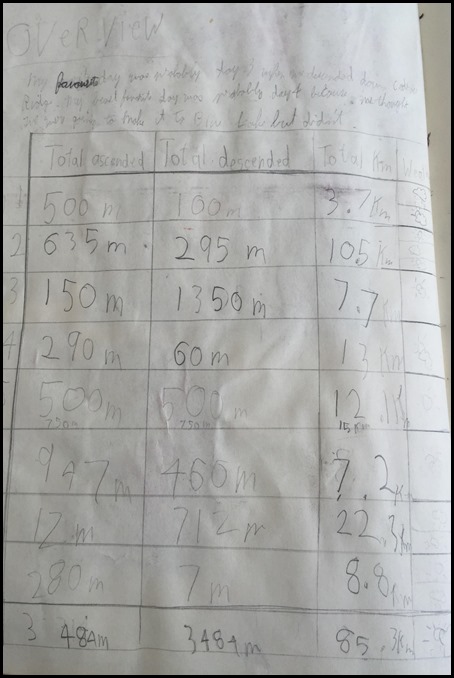 OVERVIEW
My favourite day was probably day 3 when we descended down
Ridge. My least favourite day was probably day 4 because we thought
we were going to make it to Lake but didn't.
Total ascended Total descended Total Km
1 500 m 100 m 3.7 Km
2 635 m 295 m 10.5 Km
3 150 m 1350 m 7.7
4 290 m 60 m 13 Km
500 m 500 m 12.1 K
750m 750m 15 Km
947 m 460 m 7.2 K
12 m 712 m 22.3
280 m 7 m 8.8
3484m 3484m 85.3Km